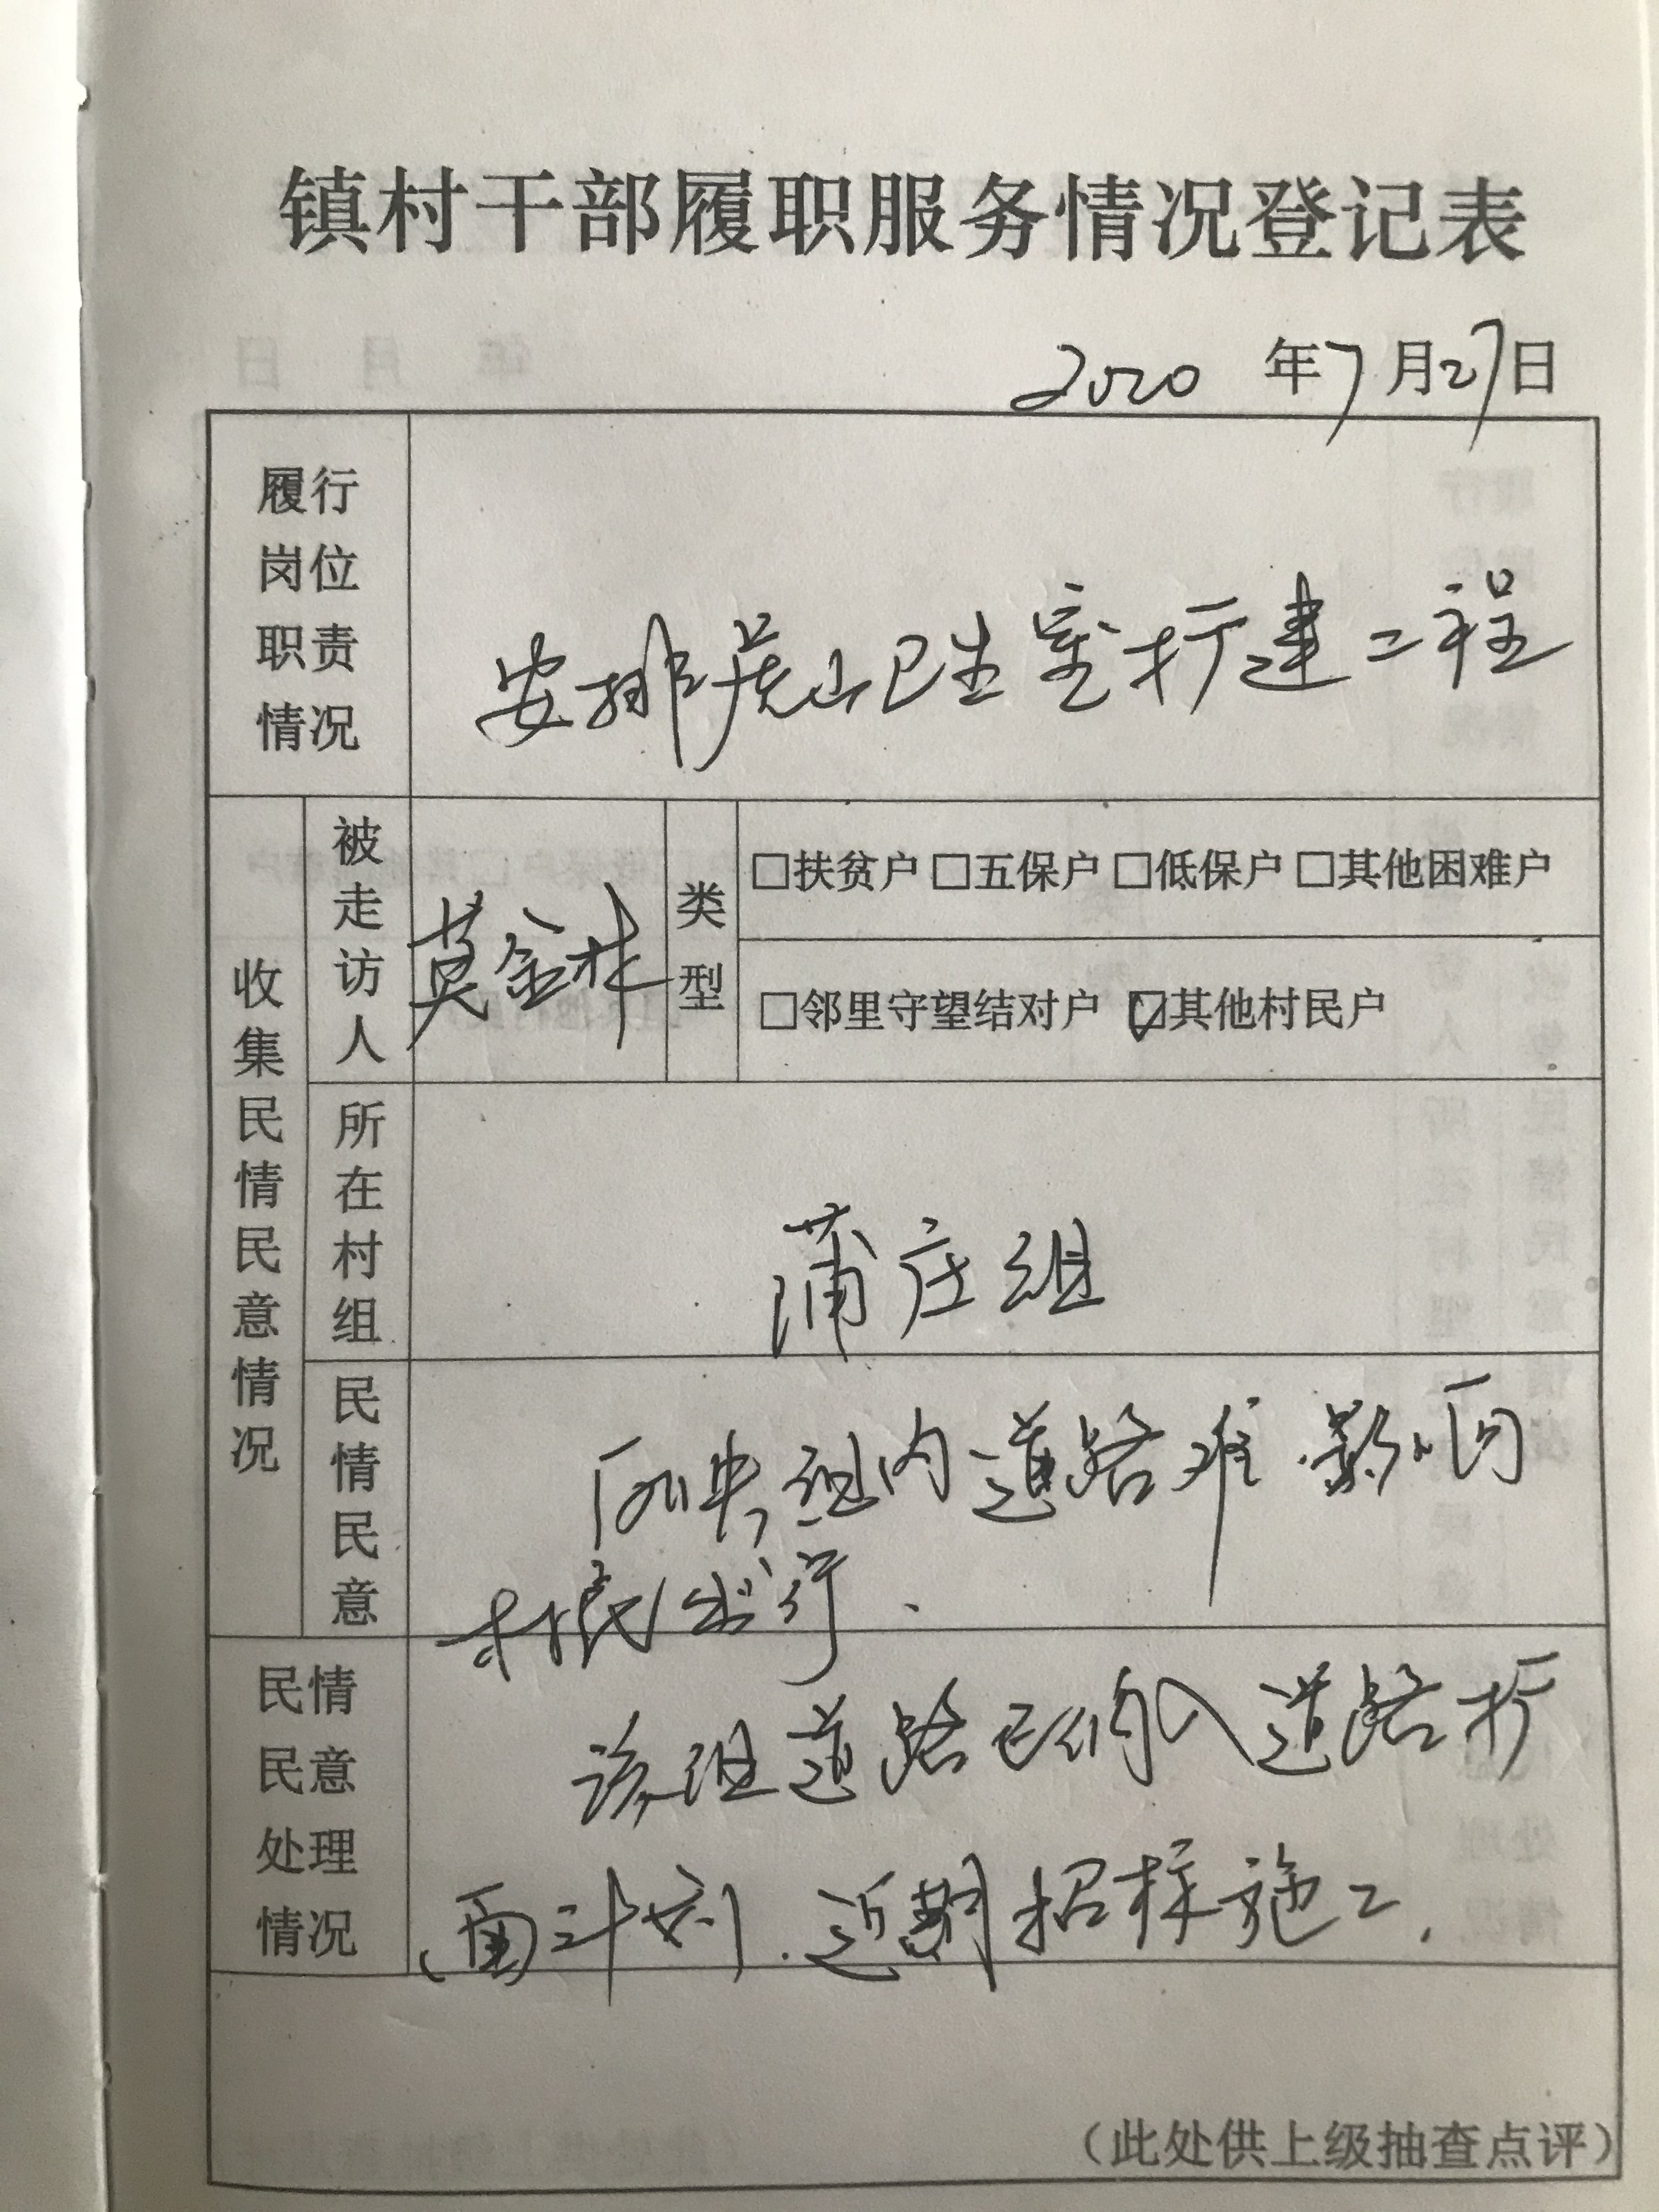 镇村干部履职服务情况登记表
2020 年 7 月 27 日
履行岗位职责情况
安排虎山卫生室扩建工程
收集民情民意情况
被走访人
莫金林
类型
□扶贫户 □五保户 □低保户 □其他困难户
□邻里守望结对户 ☑其他村民户
所在村组
蒲庄组
民情民意
反映组内道路难 影响
村民出行.
民情民意处理情况
该组道路已纳入道路扩
面计划.近期招标施工.
(此处供上级抽查点评)